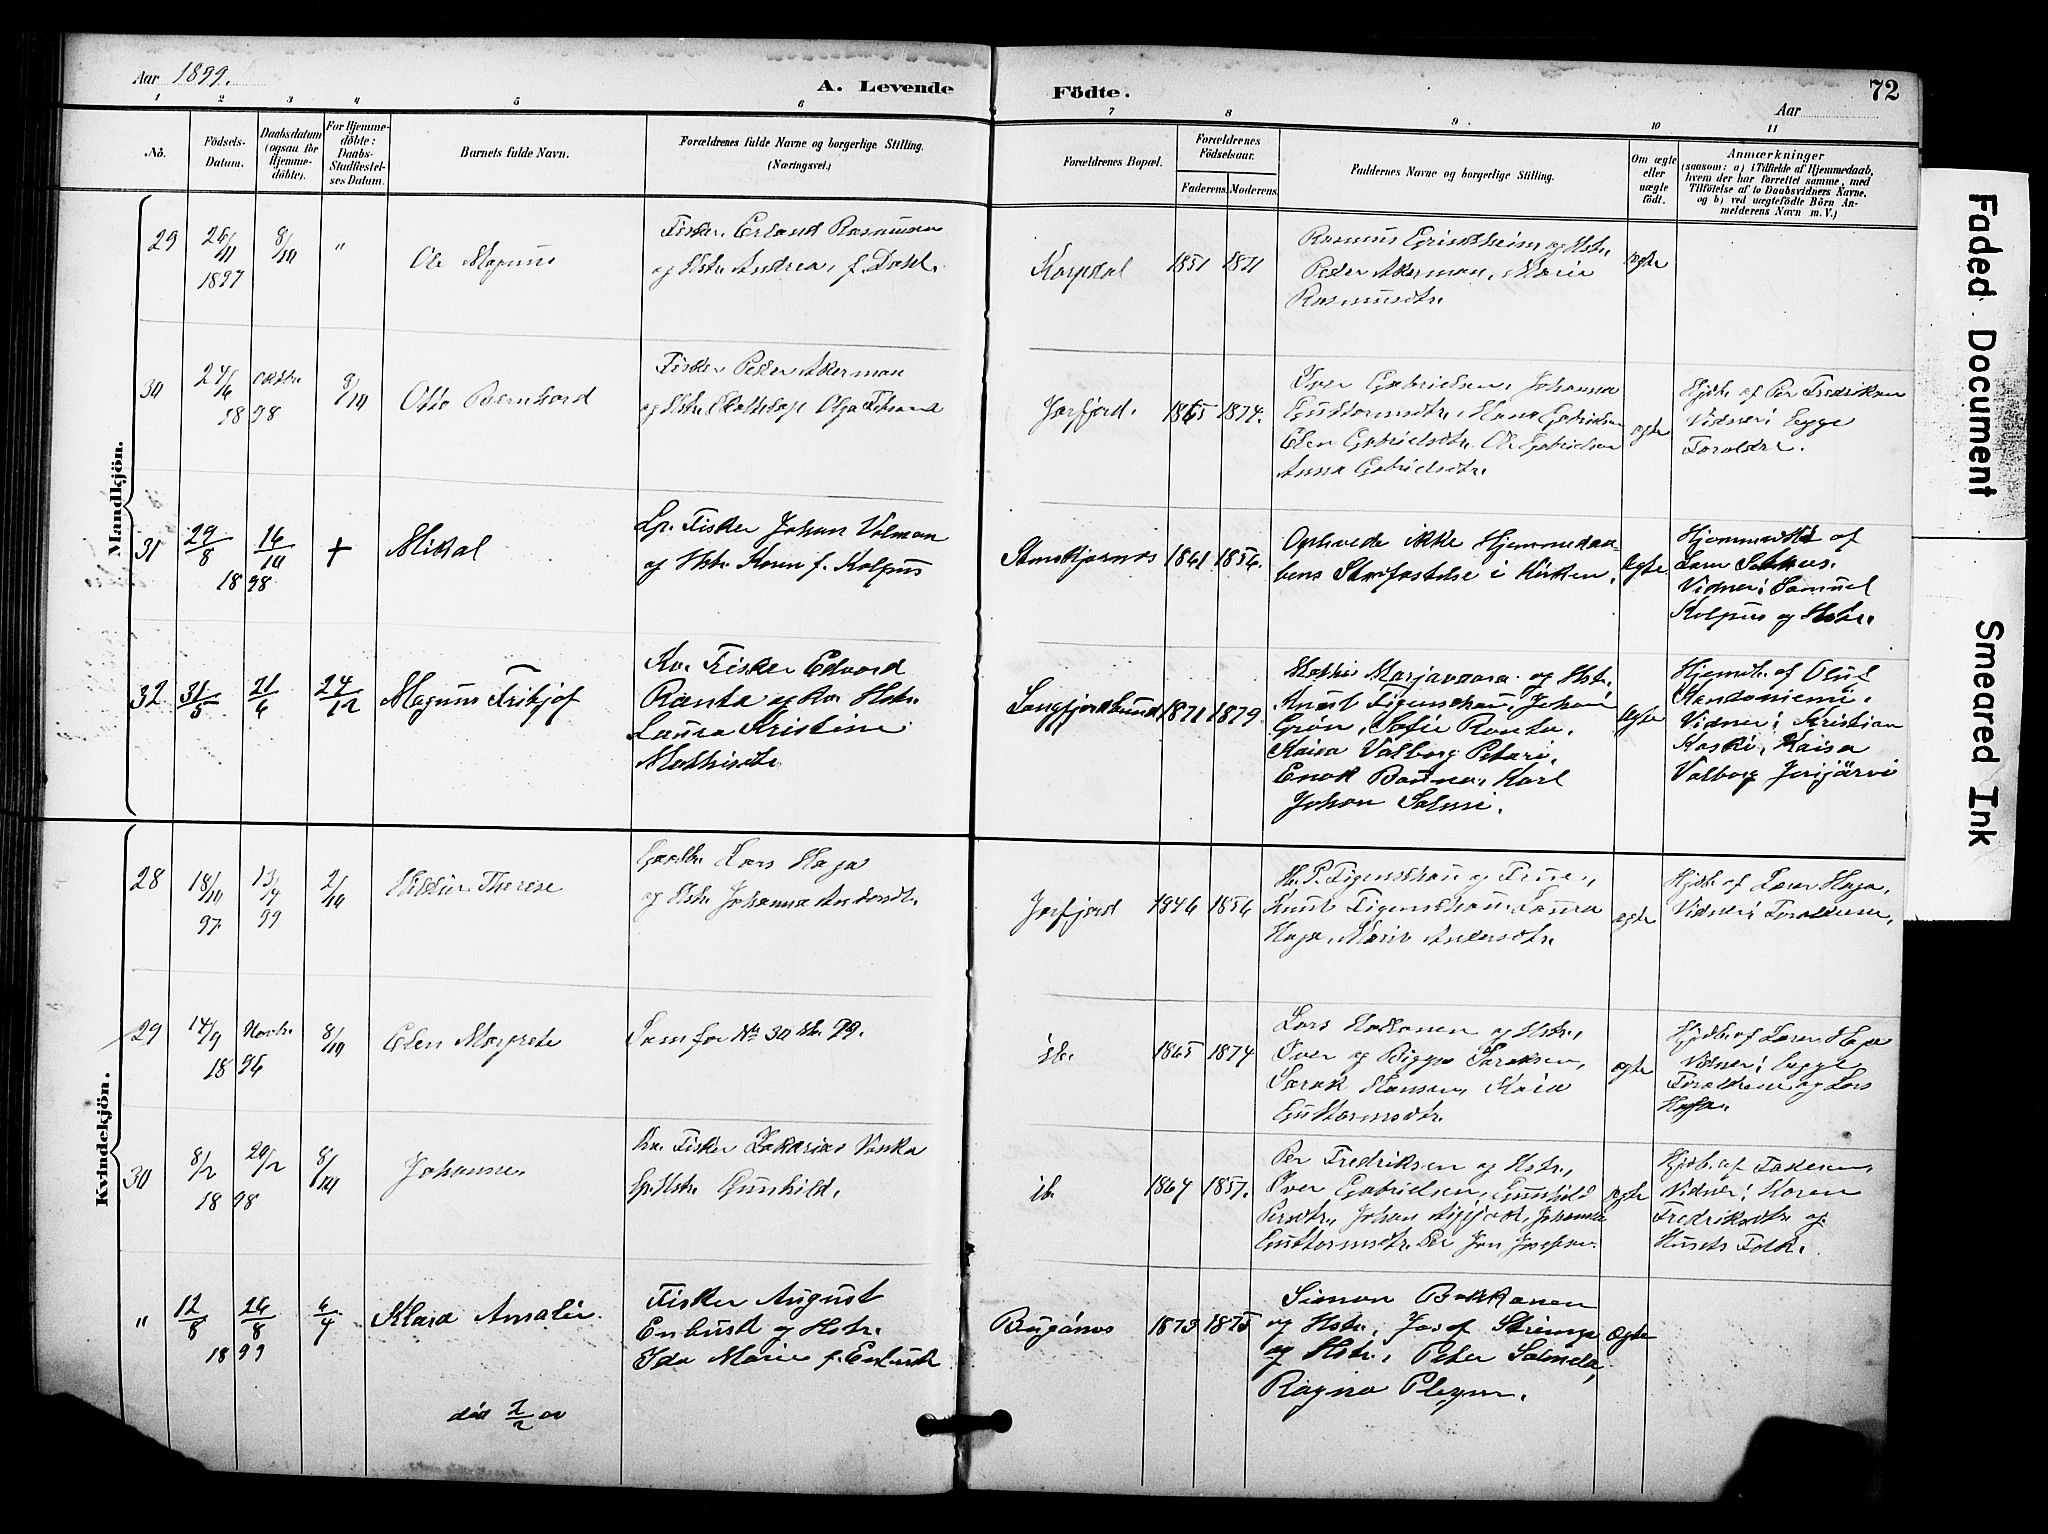 Aar 1899.
A. Levende
Födte.
Aar
72
1 2 3 4 5 6 7 8 9 10 11
No.
Födsels-
Datum.
Daabsdatum
(ogsaa for
Hjemme-
döbte).
For Hjemme-
döbte:
Daabs-
Stadfæstel-
ses Datum.
Barnets fulde Navn.
Forældrenes fulde Navne og borgerlige Stilling.
(Næringsvei.)
Forældrenes Bopæl.
Forældrenes
Födselsaar.
Faderens. Moderens.
Faddernes Navne og borgerlige Stilling.
Om ægte
eller
uægte
födt.
Anmærkninger
(saasom: a) i Tilfælde af Hjemmedaab,
hvem der har forrettet samme, med
Tilföielse af to Daabsvidners Navne.
og b) ved uægtefödte Börn An-
melderens Navn m. V.)
Mandkjön.
29
26/11
1897
8/10
"
Ole Magnus
Fisker Erland Rasmussen
og Hstr. Andrea, f. Dahl.
Karpdal
1851 1871
Rasmus Grindheim og Hstr.
Peder Akerman, Marie
Rasmusdtr.
ægte
30
24/6
18 98
oktbr.
9/10
Otto Bernhard
Fisker Peder Akerman
og Hstr.
Jarfjord.
1865 1874.
Iver Gabrielsen, Johanna
Guttormsdtr. Hans Gabrielsen
Elen Gabrielsdtr. Ole Gabrielsen
Anna Gabrielsdtr.
ægte
Hjdb. af Per Fredriksen
Vidner: begge
Foraldre.
31
29/8
18 98
16/10
+
Mikal
Lp. Fisker Johan Valman
og Hstr. Karen f. Kolpus
Stenskjærnes
1861 1856.
Ophævede ikke Hjemmedaa-
bens Stadfæstelse i Kirken.
Ægte
Hjemmedbt af
Lars
Vidner: Samuel
Kolpus og Hstr.
32
31/5
21/6
24/12
Magnus Fritjof
Kv. Fisker Edvard
Ranta og kv. Hstr.
Laura Kristine
Mathisdtr.
Langfjordbund
1871 1879.
Mathis Marjavaara og Hstr.
Knut Figenschau, Johan
Grön, Sofie Ranta,
Kaisa Valborg Petari,
Enok Banna, Karl
Johan Salmi.
Ægte
Hjemdb. af Oluf
Kandoniemi
Vidner: Kristian
Koski, Kaisa
Valborg Jerijärvi
Kvindekjön.
28
18/10
97.
13/7
99
2/10
Hildur Therese
Gaardbr. Lars Haga
og Hstr. Johanna Andersdtr.
Jarfjord
1846 1856
H. P. Figenschau og Frue,
Knut Figenschau. Laura
Haga, Marie Andersdtr.
ægte
Hjdb. af Lærer Haga,
Vidner: Foraldrene,
29
14/9
18 96
Novbr.
8/10
Elen Margrete
Som for No 30 str. 79.
ib.
1865 1874
Lars Hakkonen og Hstr.,
Iver og Bigga Saraksen,
Sarak Hansen, Kaia
Guttormsdtr.
ægte
Hjdb. af Lærer Haga
Vidner: begge
Foraldrene og Lars
Haga.
30
8/2
18 98
20/2
8/10
Johanne
Kv. Fisker Zakarias Vaska
Lp. Hstr. Gunhild.
ib.
1867 1857.
Per Fredriksen og Hstr.,
Iver Gabrielsen, Gunhild
Persdtr., Johan Johanna
Guttormsdtr. Per Jon Josefsen.
ægte
Hjdb. af Faderen,
Vidner: Karen
Fredriksdtr. og
Husets Folk.
"
12/8
18 99
26/8
6/7
Klara Amalie
Fisker August
Enbusk og Hstr.
Ida Marie f. Enbusk
död 2/2 00
Bugönes
1873 1875
Simon Bakkanen
og Hstr., Josef Strimpe
og Hstr., Peter Salmela,
Ragna Plezam.
Ægte
Faded Document
Smeared Ink